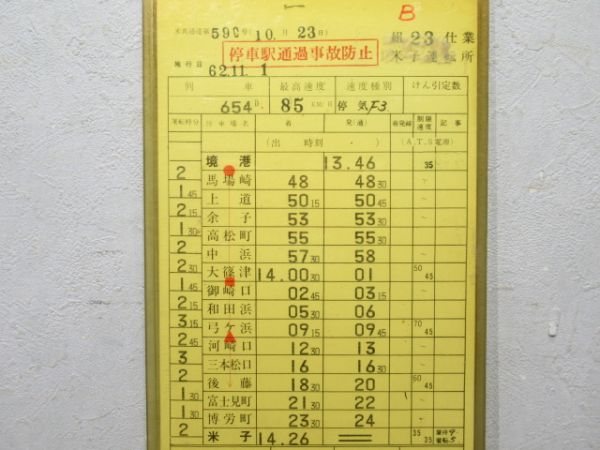 B
米鉄通達第590号(10.月23日)
組23仕業
停車駅通過事故防止
米子運転所
施行日 62.11.1
列車 最高速度 速度種別 けん引定数
654D. 85 KM/H 停気F3.
運転時分 停車場名 着 発(通) 着発線 制限速度 記事
(出 時刻 ・ ) (A.T.S電源)
境港 13.46 35
2 馬場崎 48 48 30
1 45 上道 50 15 50 45
2 15 余子 53 53 30
1 30 高松町 55 55 30
2 中浜 57 30 58
2 30 大篠津 14.00 30 01 50 45
1 45 御崎口 02 45 03 15
2 15 和田浜 05 30 06
3 15 弓ケ浜 09 15 09 45 70 45
2 45 河崎口 12 30 13
3 三本松口 16 16 30
2 後藤 18 30 20 60 45
1 30 富士見町 21 30 22
1 30 博労町 23 30 24
2 米子 14.26 35 35